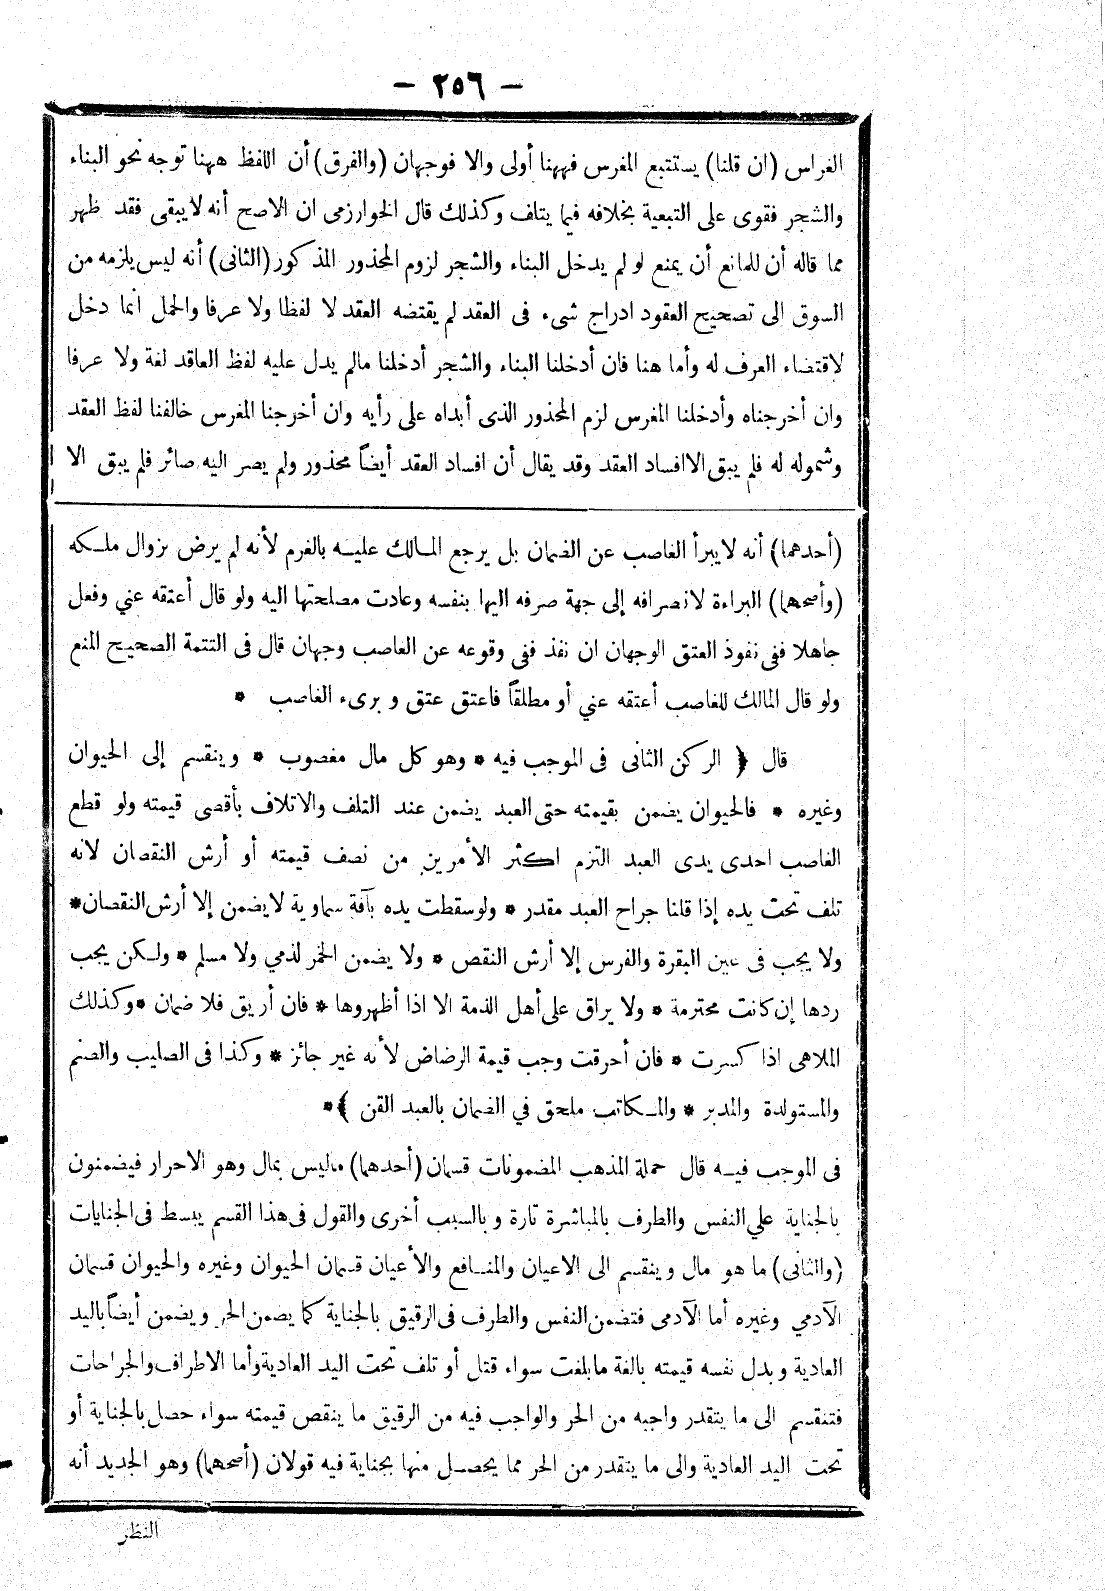 — ٢٥٦ —
الغراس (ان قلنا) يستتبع المغرس فههنا أولى والا فوجهان (والفرق) أن اللفظ ههنا توجه نحو البناء
والشجر فقوى على التبعية بخلافه فيما يتلف وكذلك قال الخوارزمى ان الاصح أنه لا يبقى فقد ظهر
مما قاله أن للمانع أن يمنع لو لم يدخل البناء والشجر لزوم المحذور المذكور (الثانى) أنه ليس يلزمه من
السوق الى تصحيح العقود ادراج شىء فى العقد لم يقتضه العقد لا لفظا ولا عرفا والحمل انما دخل
لاقتضاء العرف له وأما هنا فان أدخلنا البناء والشجر أدخلنا مالم يدل عليه لفظ العاقد لغة ولا عرفا
وان أخرجناه وأدخلنا المغرس لزم المحذور الذى أبداه على رأيه وان أخرجنا المغرس خالفنا لفظ العقد
وشموله له فلم يبق الا افساد العقد وقد يقال أن افساد العقد أيضاً محذور ولم يصر اليه صائر فلم يبق الا
(أحدهما) أنه لا يبرأ الغاصب عن الضمان بل يرجع المالك عليه بالغرم لأنه لم يرض بزوال ملكه
(وأصحهما) البراءة لانصرافه إلى جهة صرفه اليها بنفسه وعادت مصلحتها اليه ولو قال أعتقه عني وفعل
جاهلا ففى نفوذ العتق الوجهان ان نفذ ففى وقوعه عن الغاصب وجهان قال فى التتمة الصحيح المنع
ولو قال المالك للغاصب أعتقه عني أو مطلقاً فاعتق عتق و برىء الغاصب *
قال ﴿ الركن الثانى فى الموجب فيه * وهو كل مال مغصوب * وينقسم إلى الحيوان
وغيره * فالحيوان يضمن بقيمته حتى العبد يضمن عند التلف والاتلاف بأقصى قيمته ولو قطع
الغاصب احدى يدى العبد التزم اكثر الأمرين من نصف قيمته أو أرش النقصان لانه
تلف تحت يده إذا قلنا جراح العبد مقدر * ولو سقطت يده بآفة سماوية لا يضمن إلا أرش النقصان *
ولا يجب فى عين البقرة والفرس إلا أرش النقص * ولا يضمن الخمر لذمي ولا مسلم * ولكن يجب
ردها إن كانت محترمة * ولا يراق على أهل الذمة الا اذا أظهروها * فان أريق فلا ضمان * وكذلك
الملاهى اذا كسرت * فان أحرقت وجب قيمة الرضاض لأنه غير جائز * وكذا فى الصليب والصنم
والمستولدة والمدبر * والمكاتب ملحق في الضمان بالعبد القن ﴾ *
فى الموجب فيه قال حملة المذهب المضمونات قسمان (أحدهما) ماليس بمال وهو الاحرار فيضمنون
بالجناية علي النفس والطرف بالمباشرة تارة و بالسبب أخرى والقول فى هذا القسم يبسط فى الجنايات
(والثانى) ما هو مال وينقسم الى الاعيان والمنافع والأعيان قسمان الحيوان وغيره والحيوان قسمان
الآدمي وغيره أما الآدمى فتضمن النفس والطرف فى الرقيق بالجناية كما يضمن الحر ويضمن أيضاً باليد
العادية وبدل نفسه قيمته بالغة مابلغت سواء قتل أو تلف تحت اليد العادية وأما الاطراف والجراحات
فتنقسم الى ما يتقدر واجبه من الحر والواجب فيه من الرقيق ما ينقص قيمته سواء حصل بالجناية أو
تحت اليد العادية والى ما يتقدر من الحر مما يحصل منها بجناية فيه قولان (أصحهما) وهو الجديد أنه
النظر